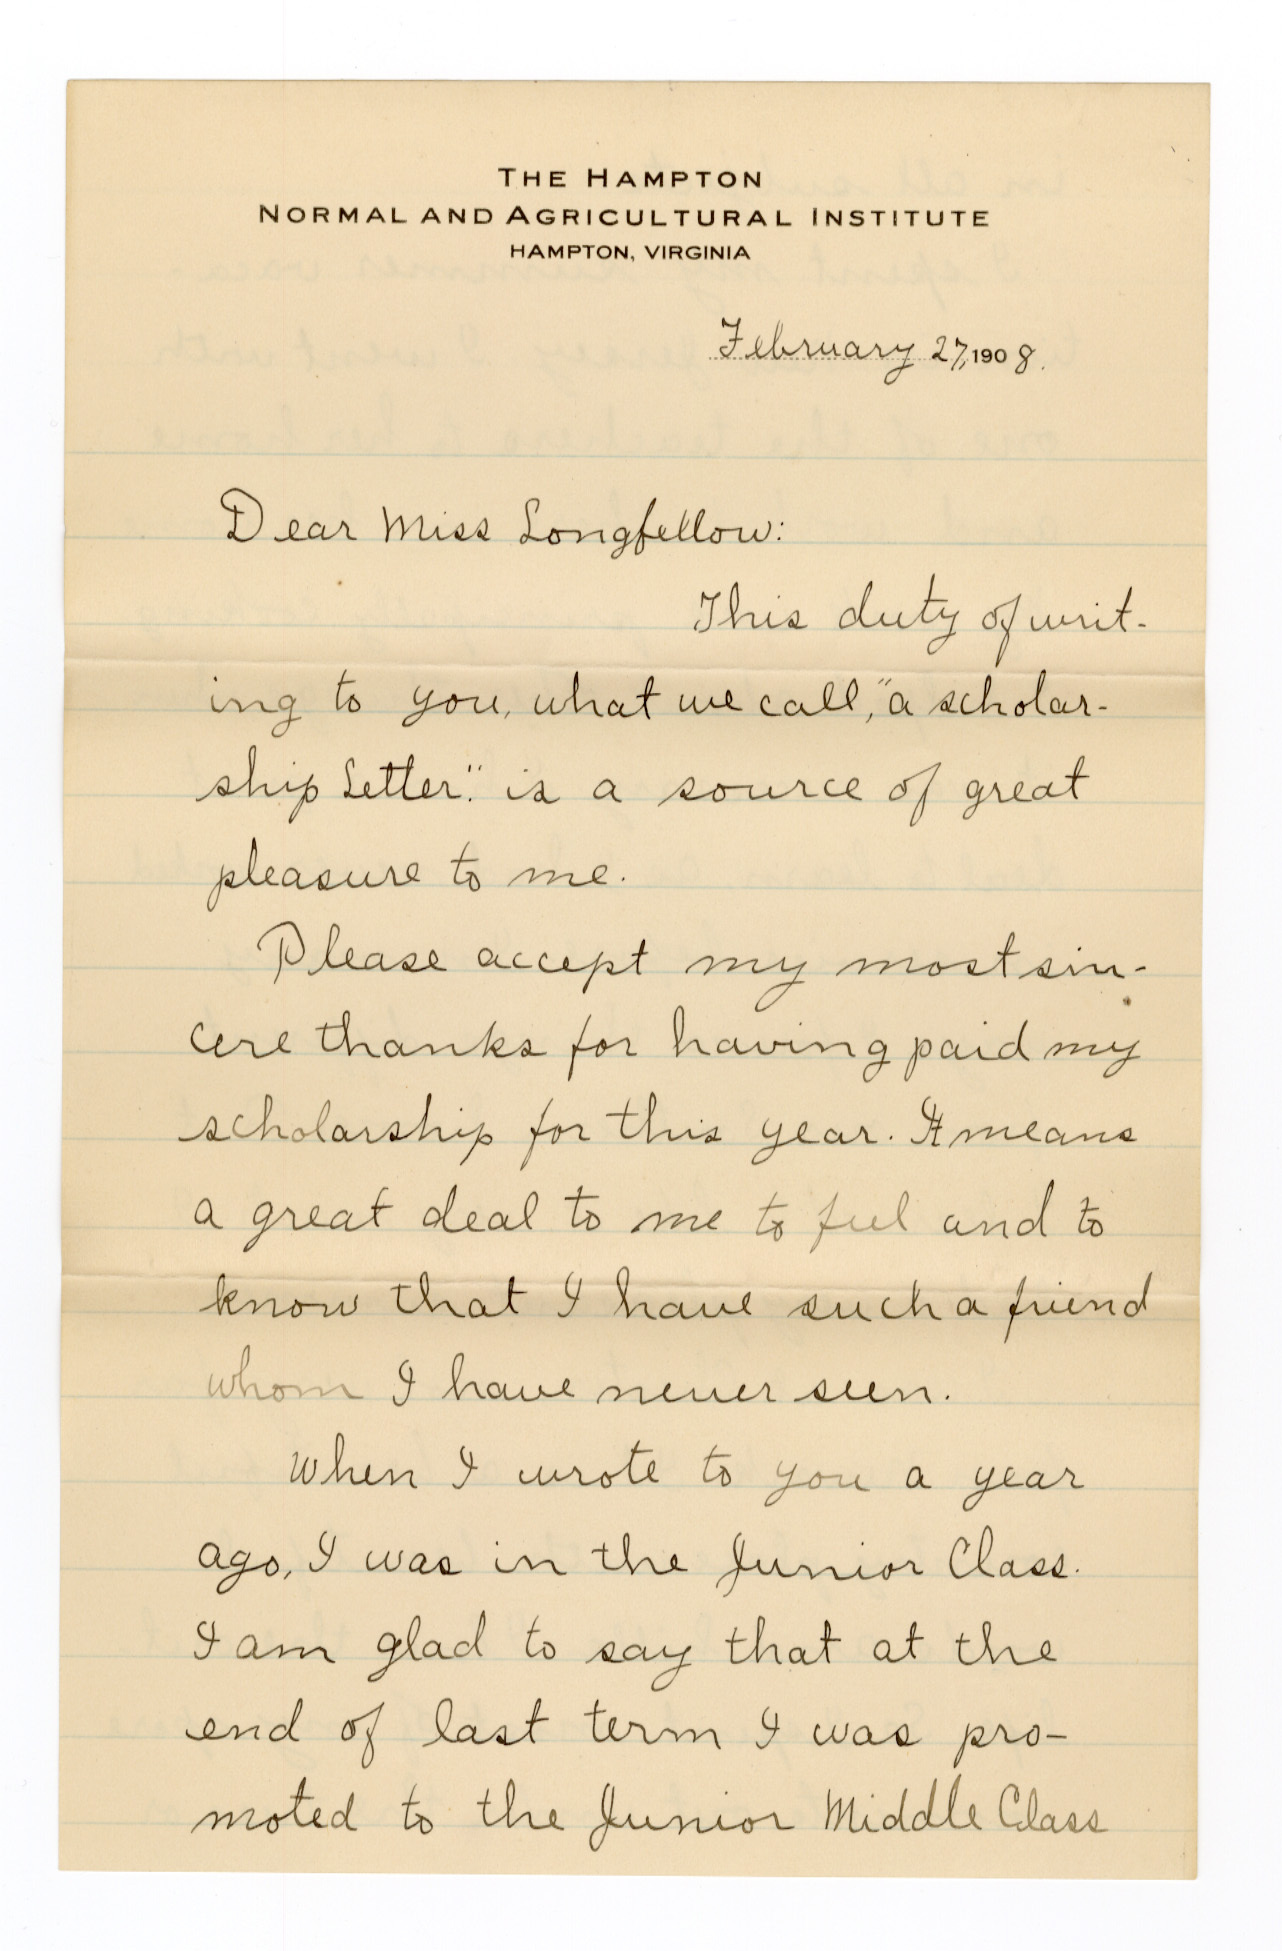 THE HAMPTON
NORMAL AND AGRICULTURAL INSTITUTE
HAMPTON, VIRGINIA
February 27, 1908.
Dear Miss Longfellow:
This duty of writ-
ing to you, what we call, "a scholar-
ship Letter." is a source of great
pleasure to me.
Please accept my most sin-
cere thanks for having paid my
scholarship for this year. It means
a great deal to me to feel and to
know that I have such a friend
whom I have never seen.
When I wrote to you a year
ago, I was in the Junior Class.
I am glad to say that at the
end of last term I was pro-
moted to the Junior Middle Class